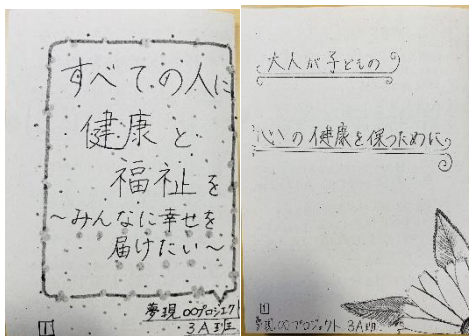 すべての人に
健康と
福祉を
～みんなに幸せを
届けたい～
夢現∞プロジェクト
3A班
1
大人が子どもの
心の健康を保つために
1
夢現∞プロジェクト 3A班